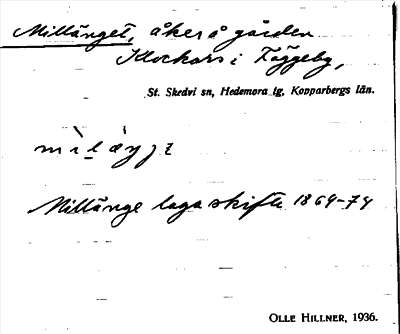 Millänget, åker å gården
Klockars i Fäggeby,
St. Skedvi sn, Hedemora tg, Kopparbergs län.
Millänge laga skifte 1869-74
OLLE HILLNER, 1936.